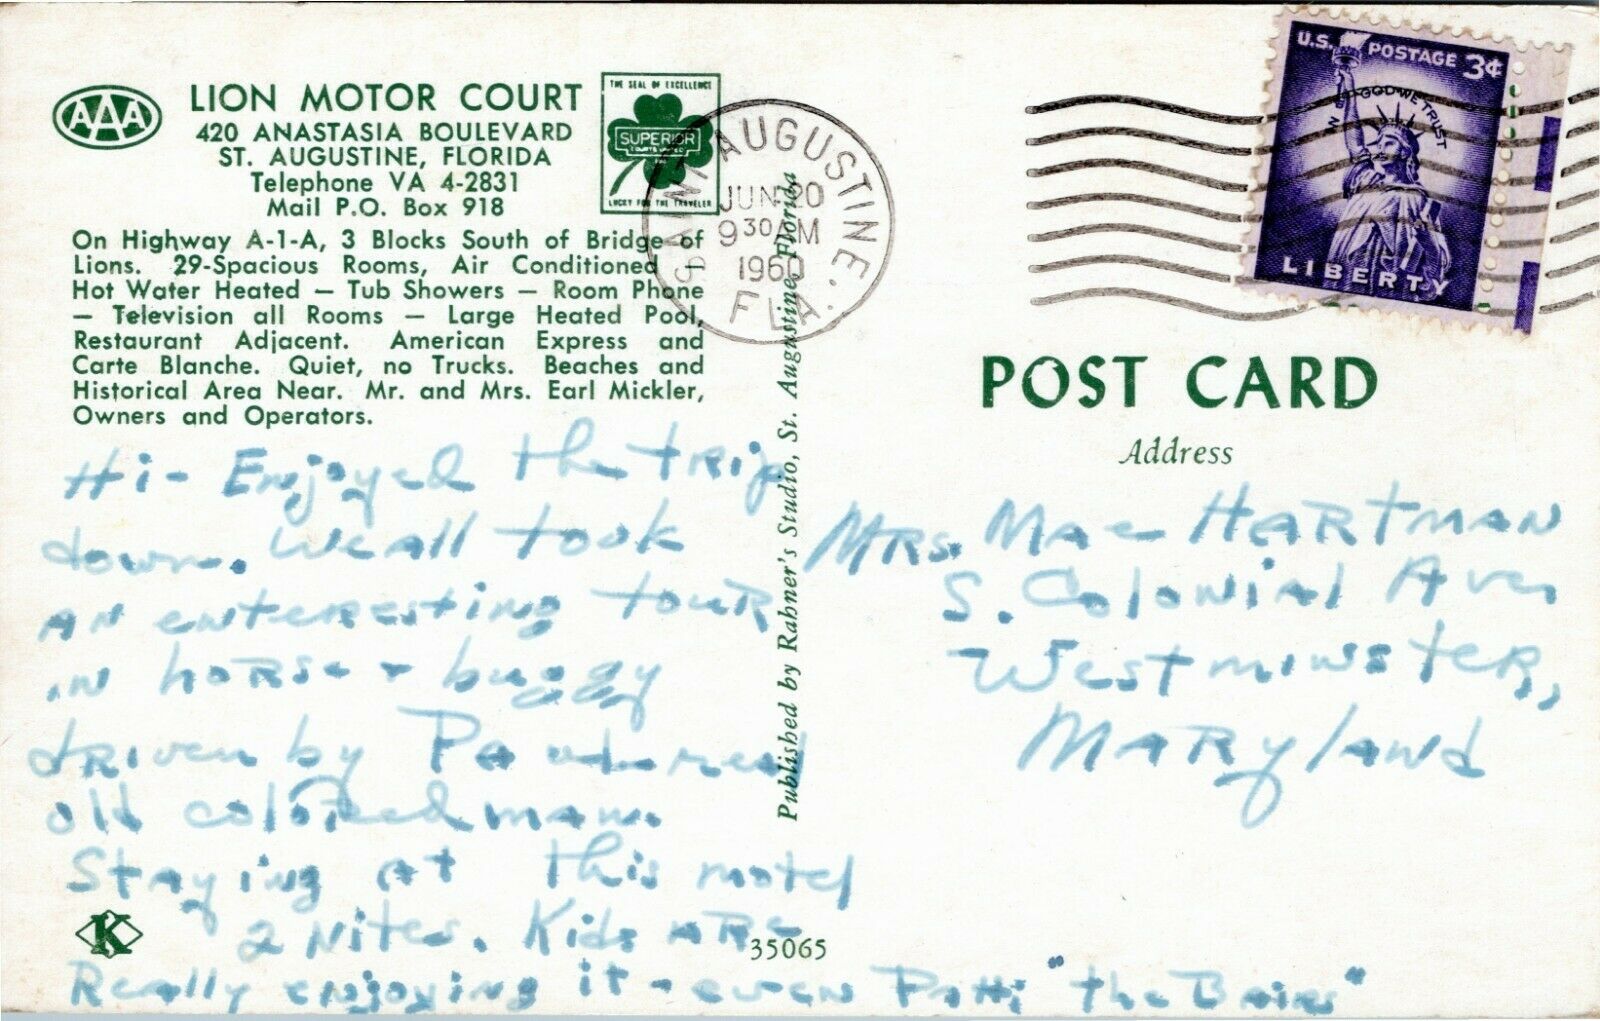 AAA
LION MOTOR COURT
420 ANASTASIA BOULEVARD
ST. AUGUSTINE, FLORIDA
Telephone VA 4-2831
Mail P.O. Box 918
THE SEAL OF EXCELLENCE
SUPERIOR
COURTS UNITED
LUCKY FOR THE TRAVELER
On Highway A-1-A, 3 Blocks South of Bridge of
Lions. 29-Spacious Rooms, Air Conditioned —
Hot Water Heated — Tub Showers — Room Phone
— Television all Rooms — Large Heated Pool,
Restaurant Adjacent. American Express and
Carte Blanche. Quiet, no Trucks. Beaches and
Historical Area Near. Mr. and Mrs. Earl Mickler,
Owners and Operators.
Hi- Enjoyed the trip
down. We all took
AN enteresting tour
in horse + buggy
driven by Paul-real
old colored man.
Staying at this motel
2 Nites. Kids are
Really enjoying it - even Patti "the
K
35065
Published by Rahner's Studio, St. Augustine, Florida
SAINT AUGUSTINE, FLA.
JUN 20
9 30 AM
1960
U.S. POSTAGE 3¢
IN GOD WE TRUST
LIBERTY
POST CARD
Address
Mrs. Mae HARTMAN
S. Colonial Ave,
Westminster,
Maryland